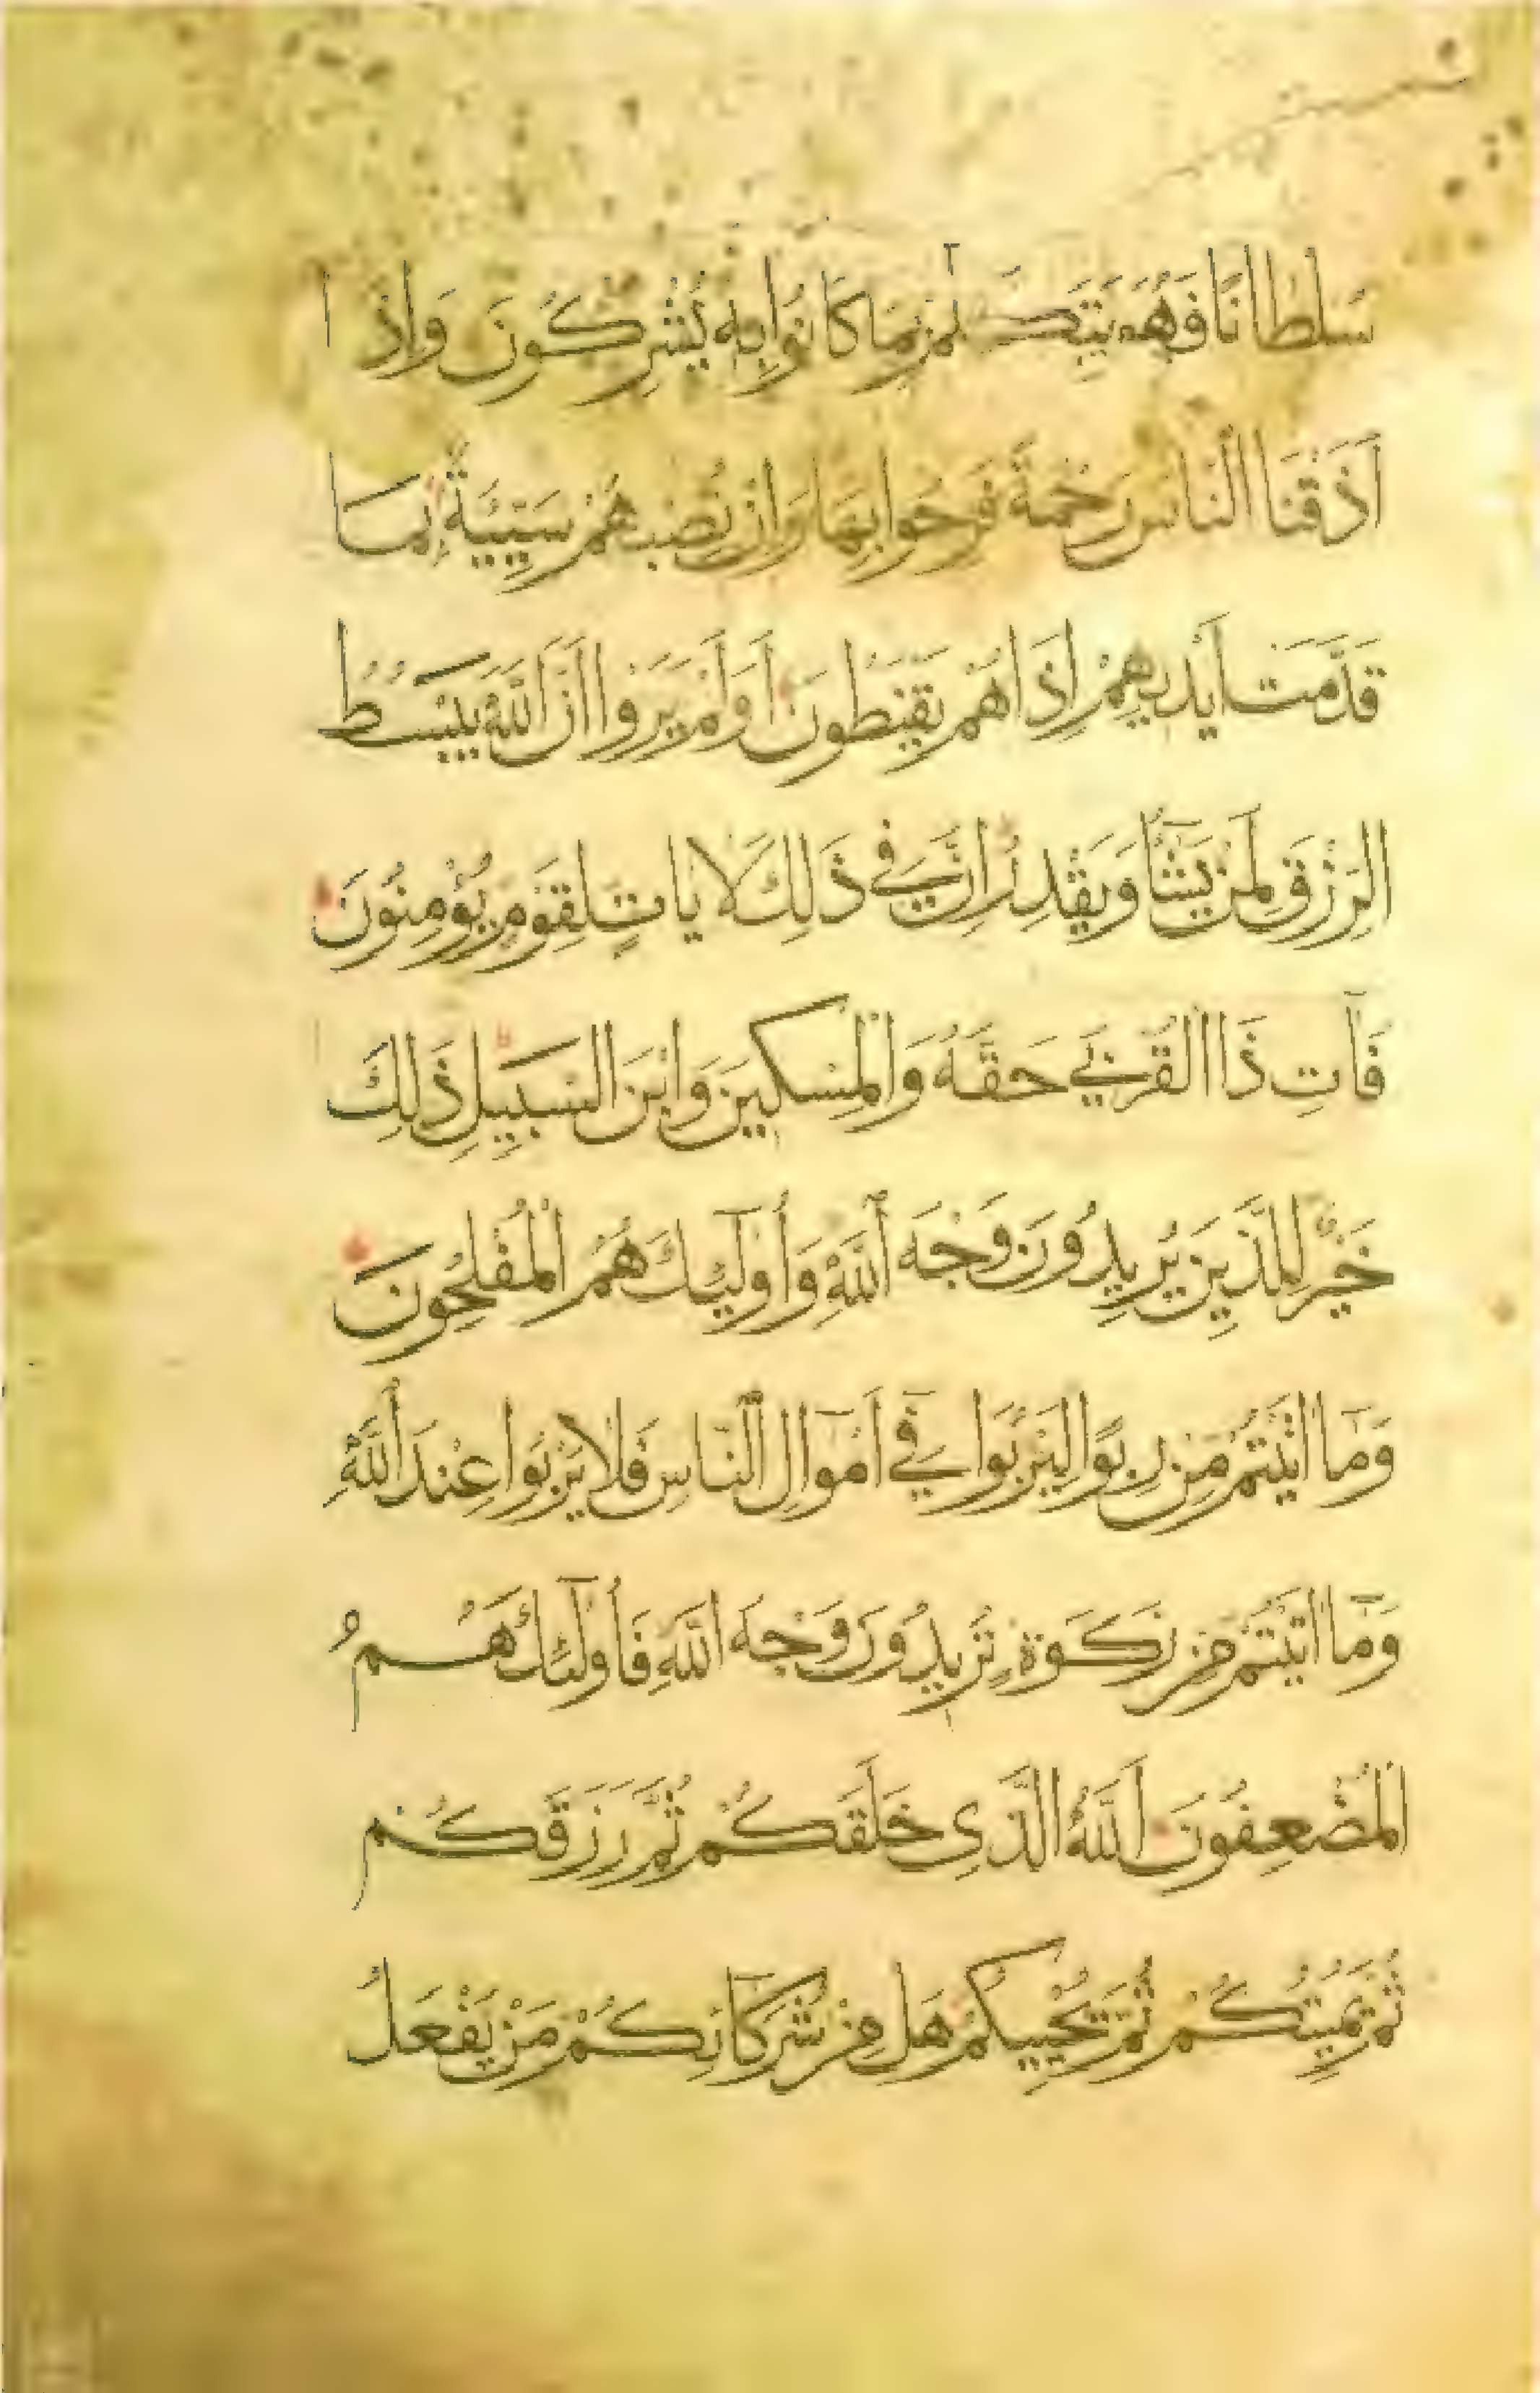 سُلطانًا فَهُوَ يَتَكَلَّمُ بِمَا كَانُوا بِهِ يُشْرِكُونَ وَاِذَا
اَذَقْنَا النَّاسَ رَحْمَةً فَرِحُوا بِهَا وَاِنْ تُصِبْهُمْ سَيِّيَةٌ بِمَا
قَدَّمَتْ اَيْدِيهِمْ اِذَا هُمْ يَقْنَطُونَ اَوَلَمْ يَرَوْا اَنَّ اللّٰهَ يَبْسُطُ
الرِّزْقَ لِمَنْ يَشَآءُ وَيَقْدِرُ اِنَّ فِي ذَلِكَ لَايَاتٍ لِقَوْمٍ يُؤْمِنُونَ
فَآتِ ذَا الْقُرْبَى حَقَّهُ وَالْمِسْكِينَ وَابْنَ السَّبِيلِ ذَلِكَ
خَيْرٌ لِلَّذِينَ يُرِيدُونَ وَجْهَ اللّٰهِ وَأُولٰٓئِكَ هُمُ الْمُفْلِحُونَ
وَمَا اٰتَيْتُمْ مِنْ رِبًوا لِيَرْبُوَا فِي اَمْوَالِ النَّاسِ فَلَا يَرْبُوا عِنْدَ اللّٰهِ
وَمَا اٰتَيْتُمْ مِنْ زَكَوةٍ تُرِيدُونَ وَجْهَ اللّٰهِ فَأُولٰٓئِكَ هُمُ
الْمُضْعِفُونَ اَللّٰهُ الَّذِي خَلَقَكُمْ ثُمَّ رَزَقَكُمْ
ثُمَّ يُمِيتُكُمْ ثُمَّ يُحْيِيكُمْ هَلْ مِنْ شُرَكَآئِكُمْ مَنْ يَفْعَلُ